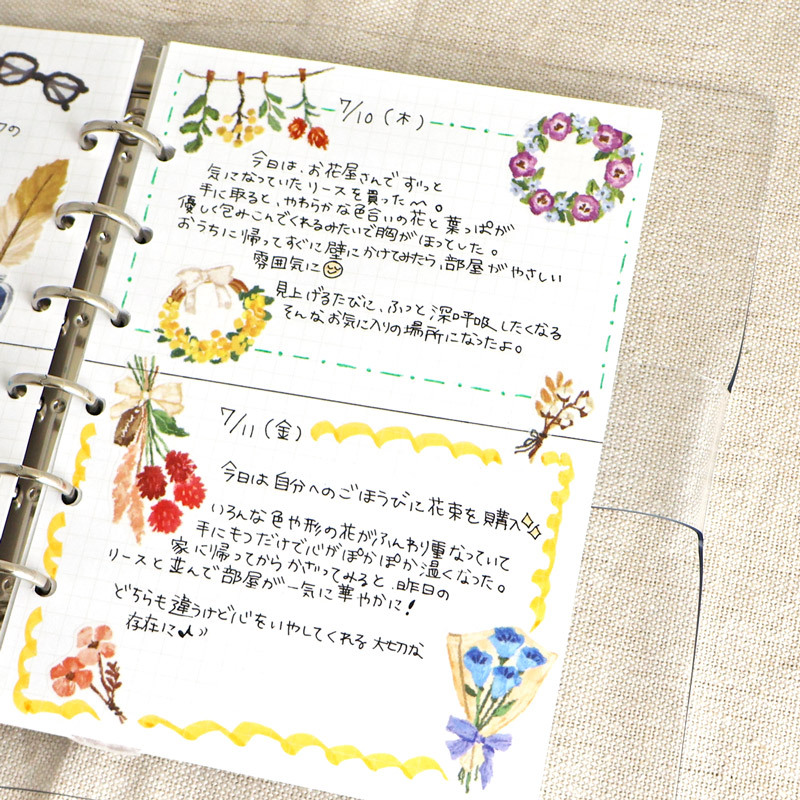 7/10(木)
今日は、お花屋さんでずっと
気になっていたリースを買った〜。
手に取ると、やわらかな色合いの花と葉っぱが
優しく包みこんでくれるみたいで胸がほっとした。
おうちに帰ってすぐに壁にかけてみたら、部屋がやさしい
雰囲気に
見上げるたびに、ふっと深呼吸したくなる
そんなお気に入りの場所になったよ。
7/11(金)
今日は自分へのごほうびに花束を購入
いろんな色や形の花がふんわり重なっていて
手にもつだけで心がぽかぽか温くなった。
家に帰ってからかざってみると、昨日の
リースと並んで部屋が一気に華やかに!
どちらも違うけど心をいやしてくれる大切な
存在に♪